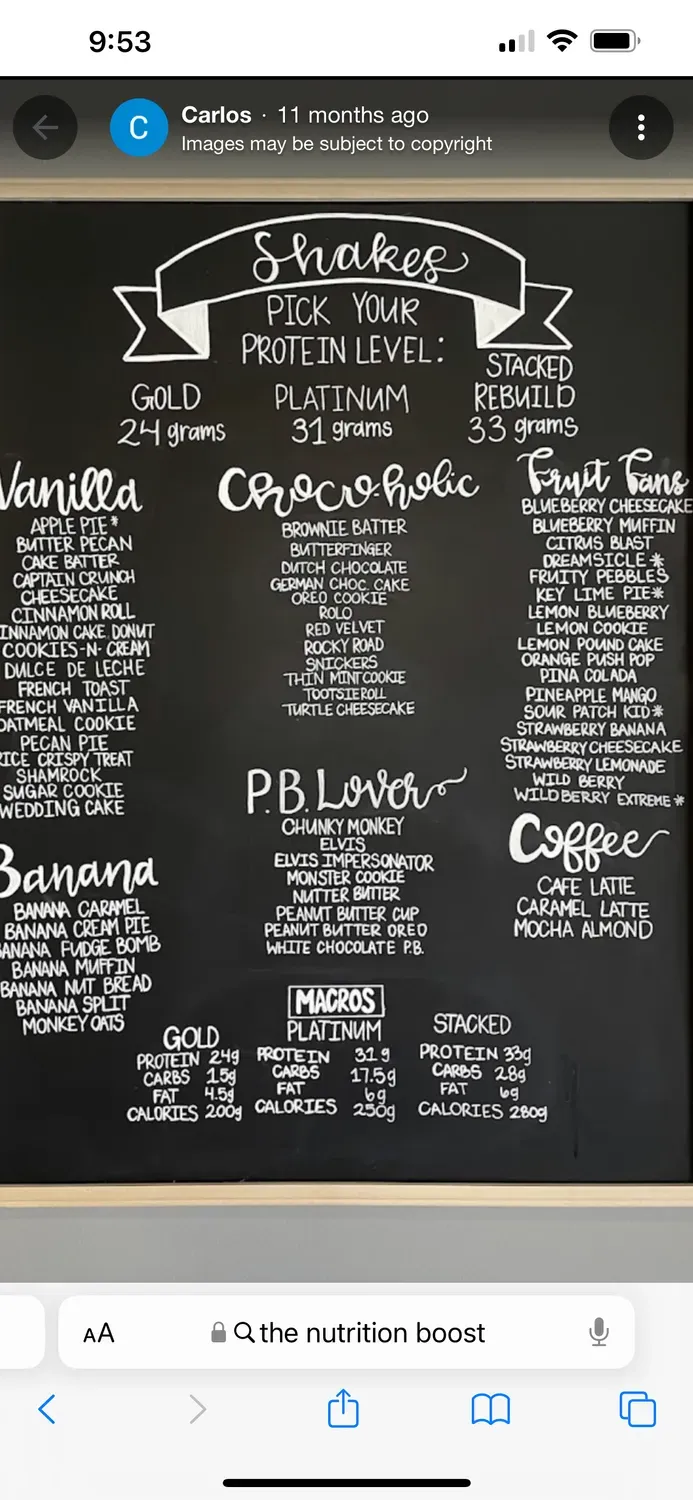 9:53
Carlos · 11 months ago
Images may be subject to copyright
Shakes
PICK YOUR
PROTEIN LEVEL:
GOLD
24 grams
PLATINUM
31 grams
STACKED
REBUILD
33 grams
Vanilla
APPLE PIE*
BUTTER PECAN
CAKE BATTER
CAPTAIN CRUNCH
CHEESECAKE
CINNAMON ROLL
INNAMON CAKE DONUT
COOKIES-N-CREAM
DULCE DE LECHE
FRENCH TOAST
FRENCH VANILLA
OATMEAL COOKIE
PECAN PIE
RICE CRISPY TREAT
SHAMROCK
SUGAR COOKIE
WEDDING CAKE
Banana
BANANA CARAMEL
BANANA CREAM PIE
BANANA FUDGE BOMB
BANANA MUFFIN
BANANA NUT BREAD
BANANA SPLIT
MONKEY OATS
Choco-holic
BROWNIE BATTER
BUTTERFINGER
DUTCH CHOCOLATE
GERMAN CHOC. CAKE
OREO COOKIE
ROLO
RED VELVET
ROCKY ROAD
SNICKERS
THIN MINT COOKIE
TOOTSIEROLL
TURTLE CHEESECAKE
P.B. Lover
CHUNKY MONKEY
ELVIS
ELVIS IMPERSONATOR
MONSTER COOKIE
NUTTER BUTTER
PEANUT BUTTER CUP
PEANUT BUTTER OREO
WHITE CHOCOLATE P.B.
Fruit Fans
BLUEBERRY CHEESECAKE
BLUEBERRY MUFFIN
CITRUS BLAST
DREAMSICLE*
FRUITY PEBBLES
KEY LIME PIE*
LEMON BLUEBERRY
LEMON COOKIE
LEMON POUND CAKE
ORANGE PUSH POP
PINA COLADA
PINEAPPLE MANGO
SOUR PATCH KID*
STRAWBERRY BANANA
STRAWBERRY CHEESECAKE
STRAWBERRY LEMONADE
WILD BERRY
WILDBERRY EXTREME*
Coffee
CAFE LATTE
CARAMEL LATTE
MOCHA ALMOND
MACROS
GOLD
PROTEIN 24g
CARBS 15g
FAT 4.5g
CALORIES 200g
PLATINUM
PROTEIN 31g
CARBS 17.5g
FAT 6g
CALORIES 250g
STACKED
PROTEIN 33g
CARBS 28g
FAT 6g
CALORIES 280g
AA
the nutrition boost